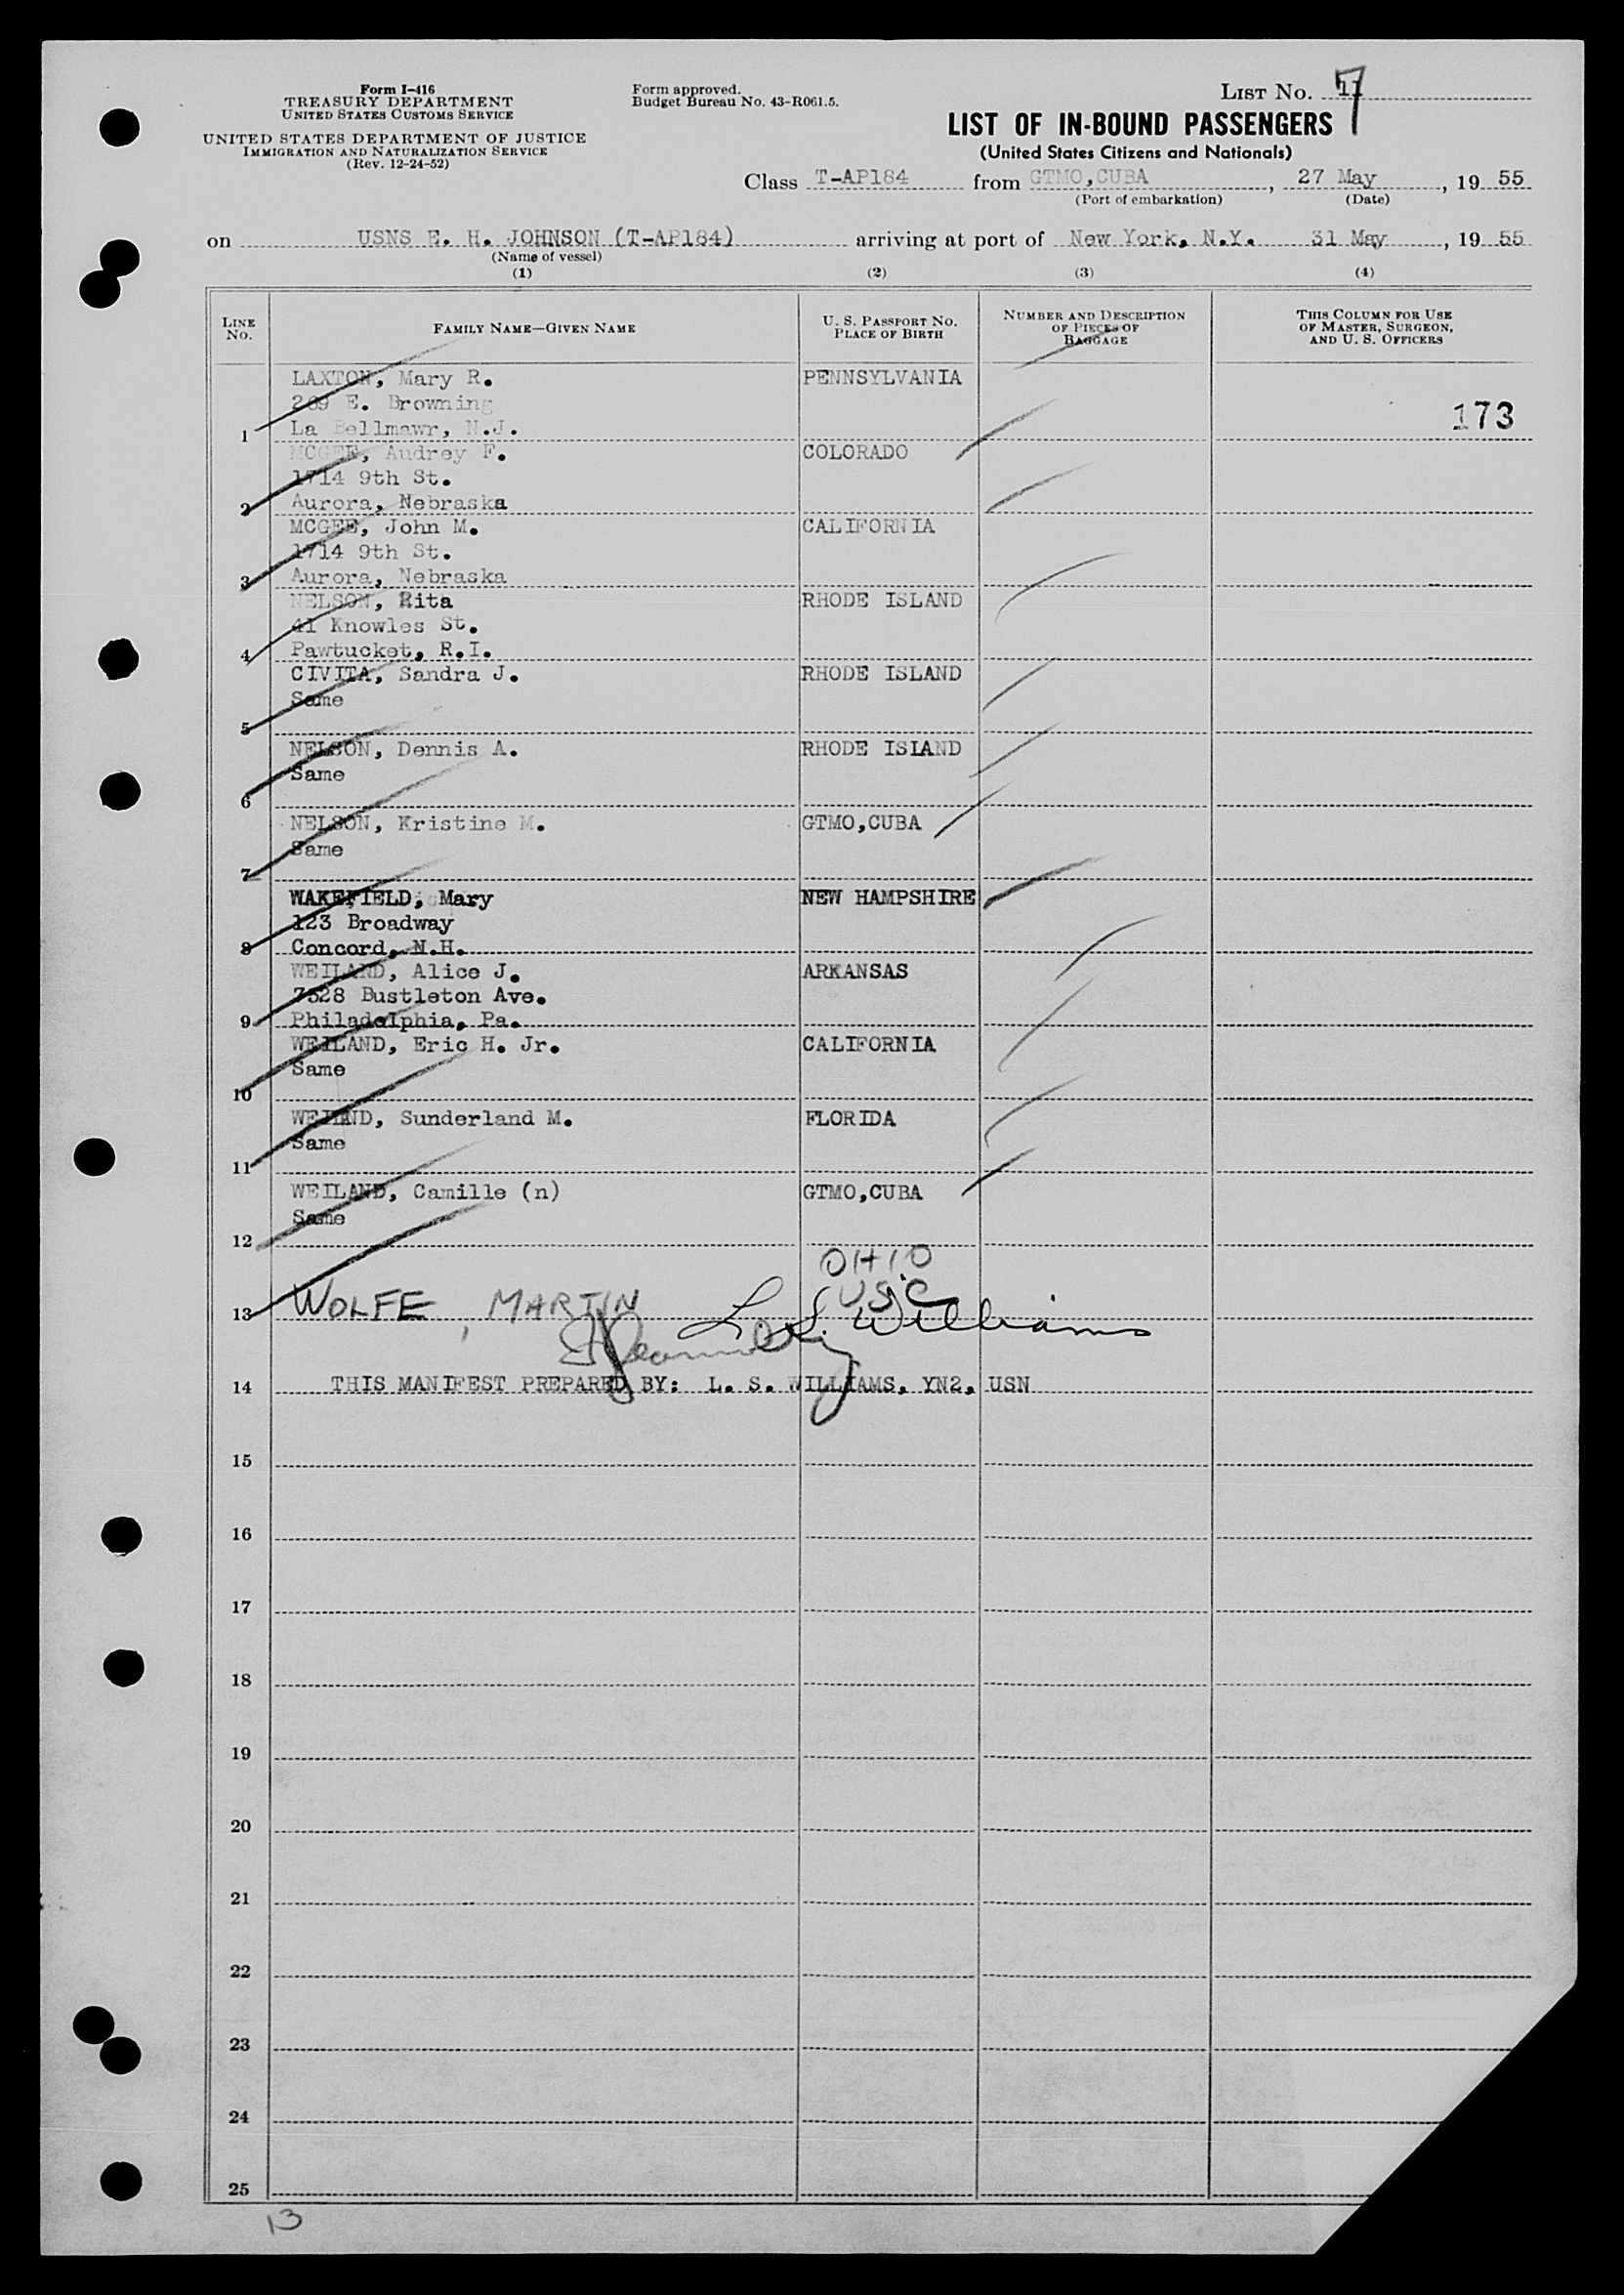 Form I-416
TREASURY DEPARTMENT
UNITED STATES CUSTOMS SERVICE
UNITED STATES DEPARTMENT OF JUSTICE
IMMIGRATION AND NATURALIZATION SERVICE
(Rev. 12-24-52)
Form approved.
Budget Bureau No. 43-R061.5.
LIST No. 11 7
LIST OF IN-BOUND PASSENGERS
(United States Citizens and Nationals)
Class T-AP184 from GTMO,CUBA, 27 May, 19 55
(Port of embarkation) (Date)
on USNS E. H. JOHNSON (T-AP184) arriving at port of New York, N.Y. 31 May, 19 55
(Name of vessel)
(1) (2) (3) (4)
LINE No. FAMILY NAME—GIVEN NAME U. S. PASSPORT No. PLACE OF BIRTH NUMBER AND DESCRIPTION OF PIECES OF BAGGAGE THIS COLUMN FOR USE OF MASTER, SURGEON, AND U. S. OFFICERS
LAXTON, Mary R. PENNSYLVANIA
269 E. Browning
173
1 La Bellmawr, N.J.
MCGEE, Audrey F. COLORADO
1714 9th St.
2 Aurora, Nebraska
MCGEE, John M. CALIFORNIA
1714 9th St.
3 Aurora, Nebraska
NELSON, Rita RHODE ISLAND
41 Knowles St.
4 Pawtucket, R.I.
CIVITA, Sandra J. RHODE ISLAND
Same
5
NELSON, Dennis A. RHODE ISLAND
Same
6
NELSON, Kristine M. GTMO,CUBA
Same
7
WAKEFIELD, Mary NEW HAMPSHIRE
123 Broadway
8 Concord, N.H.
WEILAND, Alice J. ARKANSAS
7528 Bustleton Ave.
9 Philadelphia, Pa.
WEILAND, Eric H. Jr. CALIFORNIA
Same
10
WEILAND, Sunderland M. FLORIDA
Same
11
WEILAND, Camille (n) GTMO,CUBA
Same
12
OHIO
USC
13 WOLFE, MARTIN
L. S. Williams
14 THIS MANIFEST PREPARED BY: L. S. WILLIAMS, YN2, USN
15
16
17
18
19
20
21
22
23
24
25
13